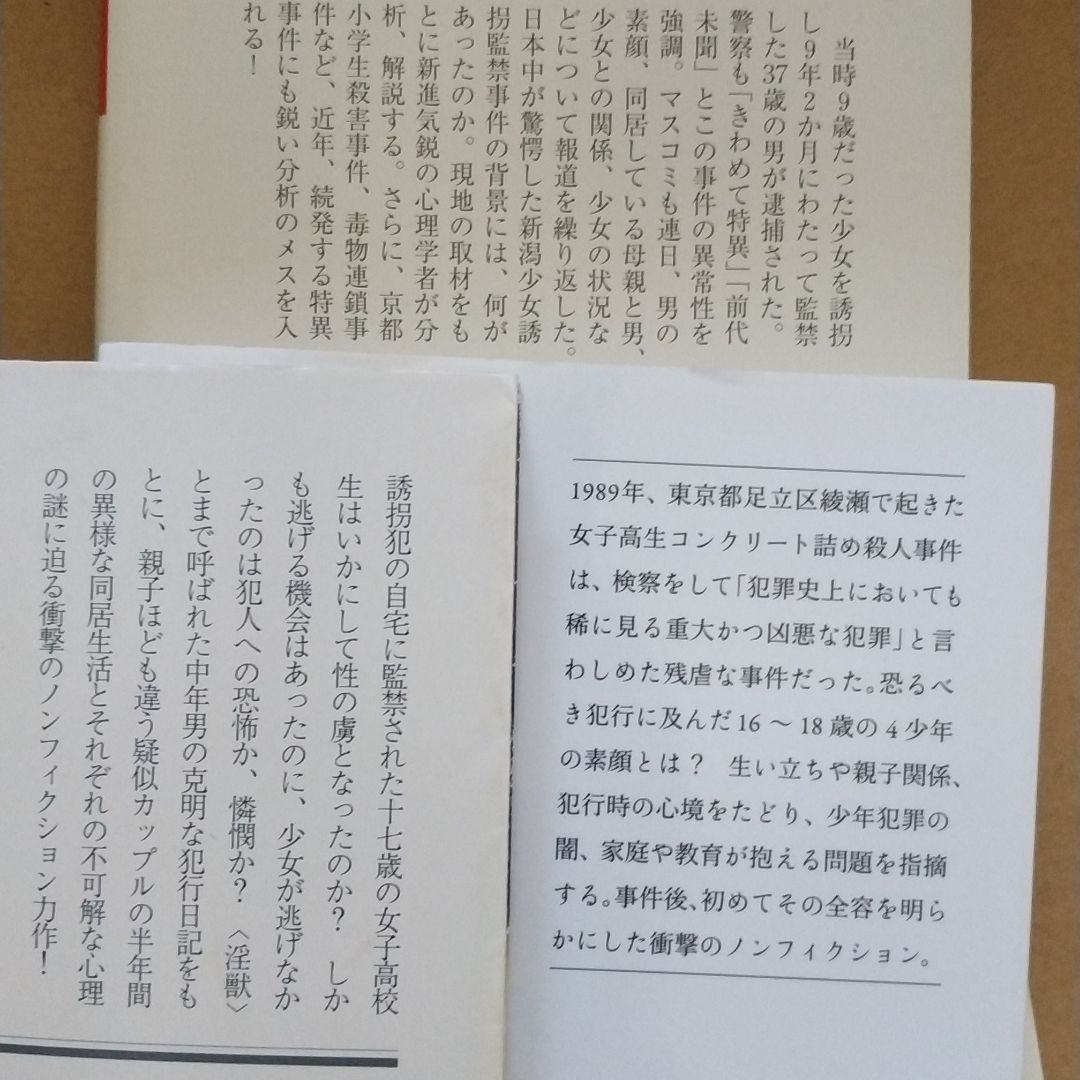 当時9歳だった少女を誘拐
し9年2か月にわたって監禁
した37歳の男が逮捕された。
警察も「きわめて特異」「前代
未聞」とこの事件の異常性を
強調。マスコミも連日、男の
素顔、同居している母親と男、
少女との関係、少女の状況な
どについて報道を繰り返した。
日本中が驚愕した新潟少女誘
拐監禁事件の背景には、何が
あったのか。現地の取材をも
とに新進気鋭の心理学者が分
析、解説する。さらに、京都
小学生殺害事件、毒物連鎖事
件など、近年、続発する特異
事件にも鋭い分析のメスを入
れる！
誘拐犯の自宅に監禁された十七歳の女子高校
生はいかにして性の虜となったのか？　しか
も逃げる機会はあったのに、少女が逃げなか
ったのは犯人への恐怖か、憐憫か？〈淫獣〉
とまで呼ばれた中年男の克明な犯行日記をも
とに、親子ほども違う疑似カップルの半年間
の異様な同居生活とそれぞれの不可解な心理
の謎に迫る衝撃のノンフィクション力作！
1989年、東京都足立区綾瀬で起きた
女子高生コンクリート詰め殺人事件
は、検察をして「犯罪史上においても
稀に見る重大かつ凶悪な犯罪」と言
わしめた残虐な事件だった。恐るべ
き犯行に及んだ16〜18歳の4少年
の素顔とは？　生い立ちや親子関係、
犯行時の心境をたどり、少年犯罪の
闇、家庭や教育が抱える問題を指摘
する。事件後、初めてその全容を明ら
かにした衝撃のノンフィクション。